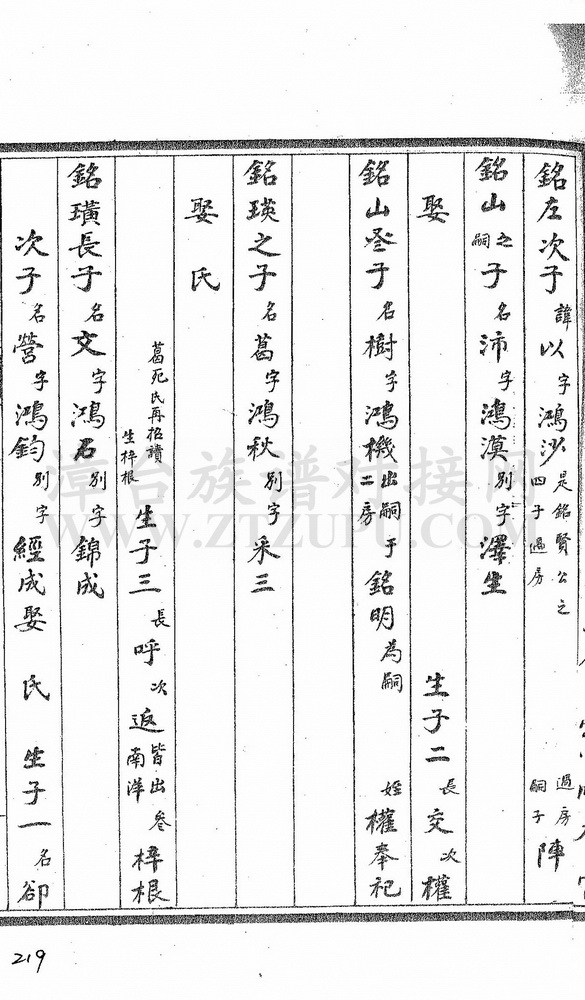 銘左次子諱以字鴻沙是銘賢公之四子過房 過房嗣子陣
銘山之嗣子名沛字鴻漠別字澤生
娶 生子二長交次權
銘山叁子名樹字鴻機出嗣于二房銘明為嗣 姪權奉祀
銘瑛之子名葛字鴻秋別字采三
娶氏
葛死氏再招讀生梓根 生子三長呼次返皆出南洋叁梓根
銘璜長子名文字鴻名別字錦成
次子名營字鴻鈞別字經成娶 氏 生子一名卻
漳台族谱对接网
WWW.ZTZUPU.COM
219